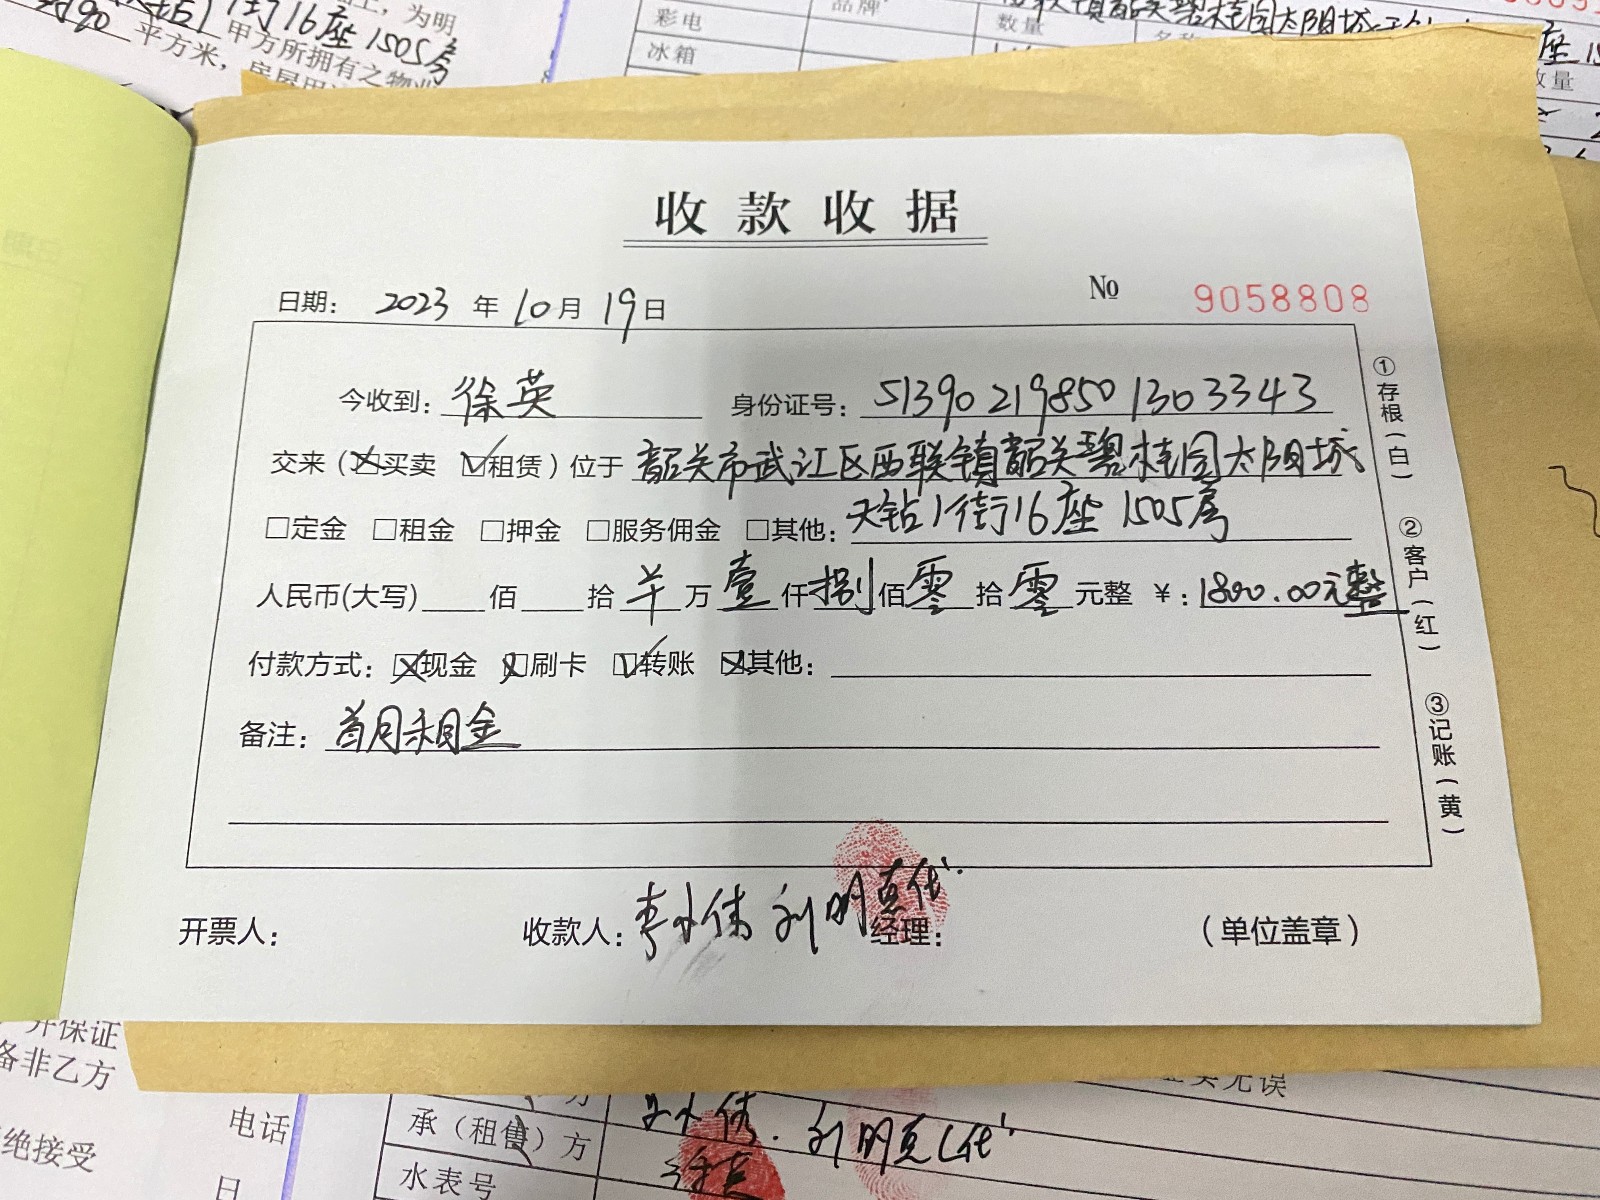 上，为明
街16座1505房
甲方所拥有之物业
平方米，
彩电
品牌
数量
冰箱
座
数量
收款收据
日期： 2023 年 10 月 19 日
№ 9058808
今收到： 徐英 身份证号： 513902198501303343
交来（☒买卖 ☑租赁）位于 韶关市武江区西联镇韶关碧桂园太阳城
□定金 □租金 □押金 □服务佣金 □其他： 天钻1街16座1505房
人民币(大写) 佰 拾 万 壹 仟 捌 佰 零 拾 零 元整 ¥：1800.00元整
付款方式：☒现金 ☒刷卡 ☑转账 ☒其他：
备注： 首月租金
①存根（白）
②客户（红）
③记账（黄）
开票人： 收款人： 李小伟 刘明 代 经理： （单位盖章）
并保证
备非乙方
绝接受
电话
日
承（租售）方
水表号
刘明 代